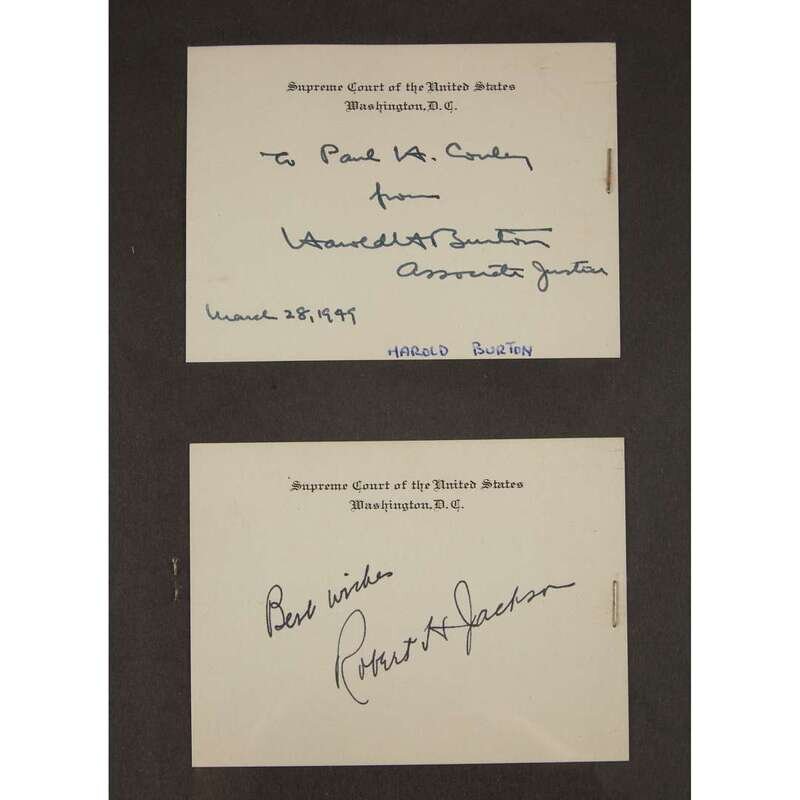 Supreme Court of the United States
Washington, D.C.
To Paul H. Conley
from
Harold H Burton
Associate Justice
March 28, 1949
HAROLD BURTON
Supreme Court of the United States
Washington, D.C.
Best wishes
Robert H Jackson